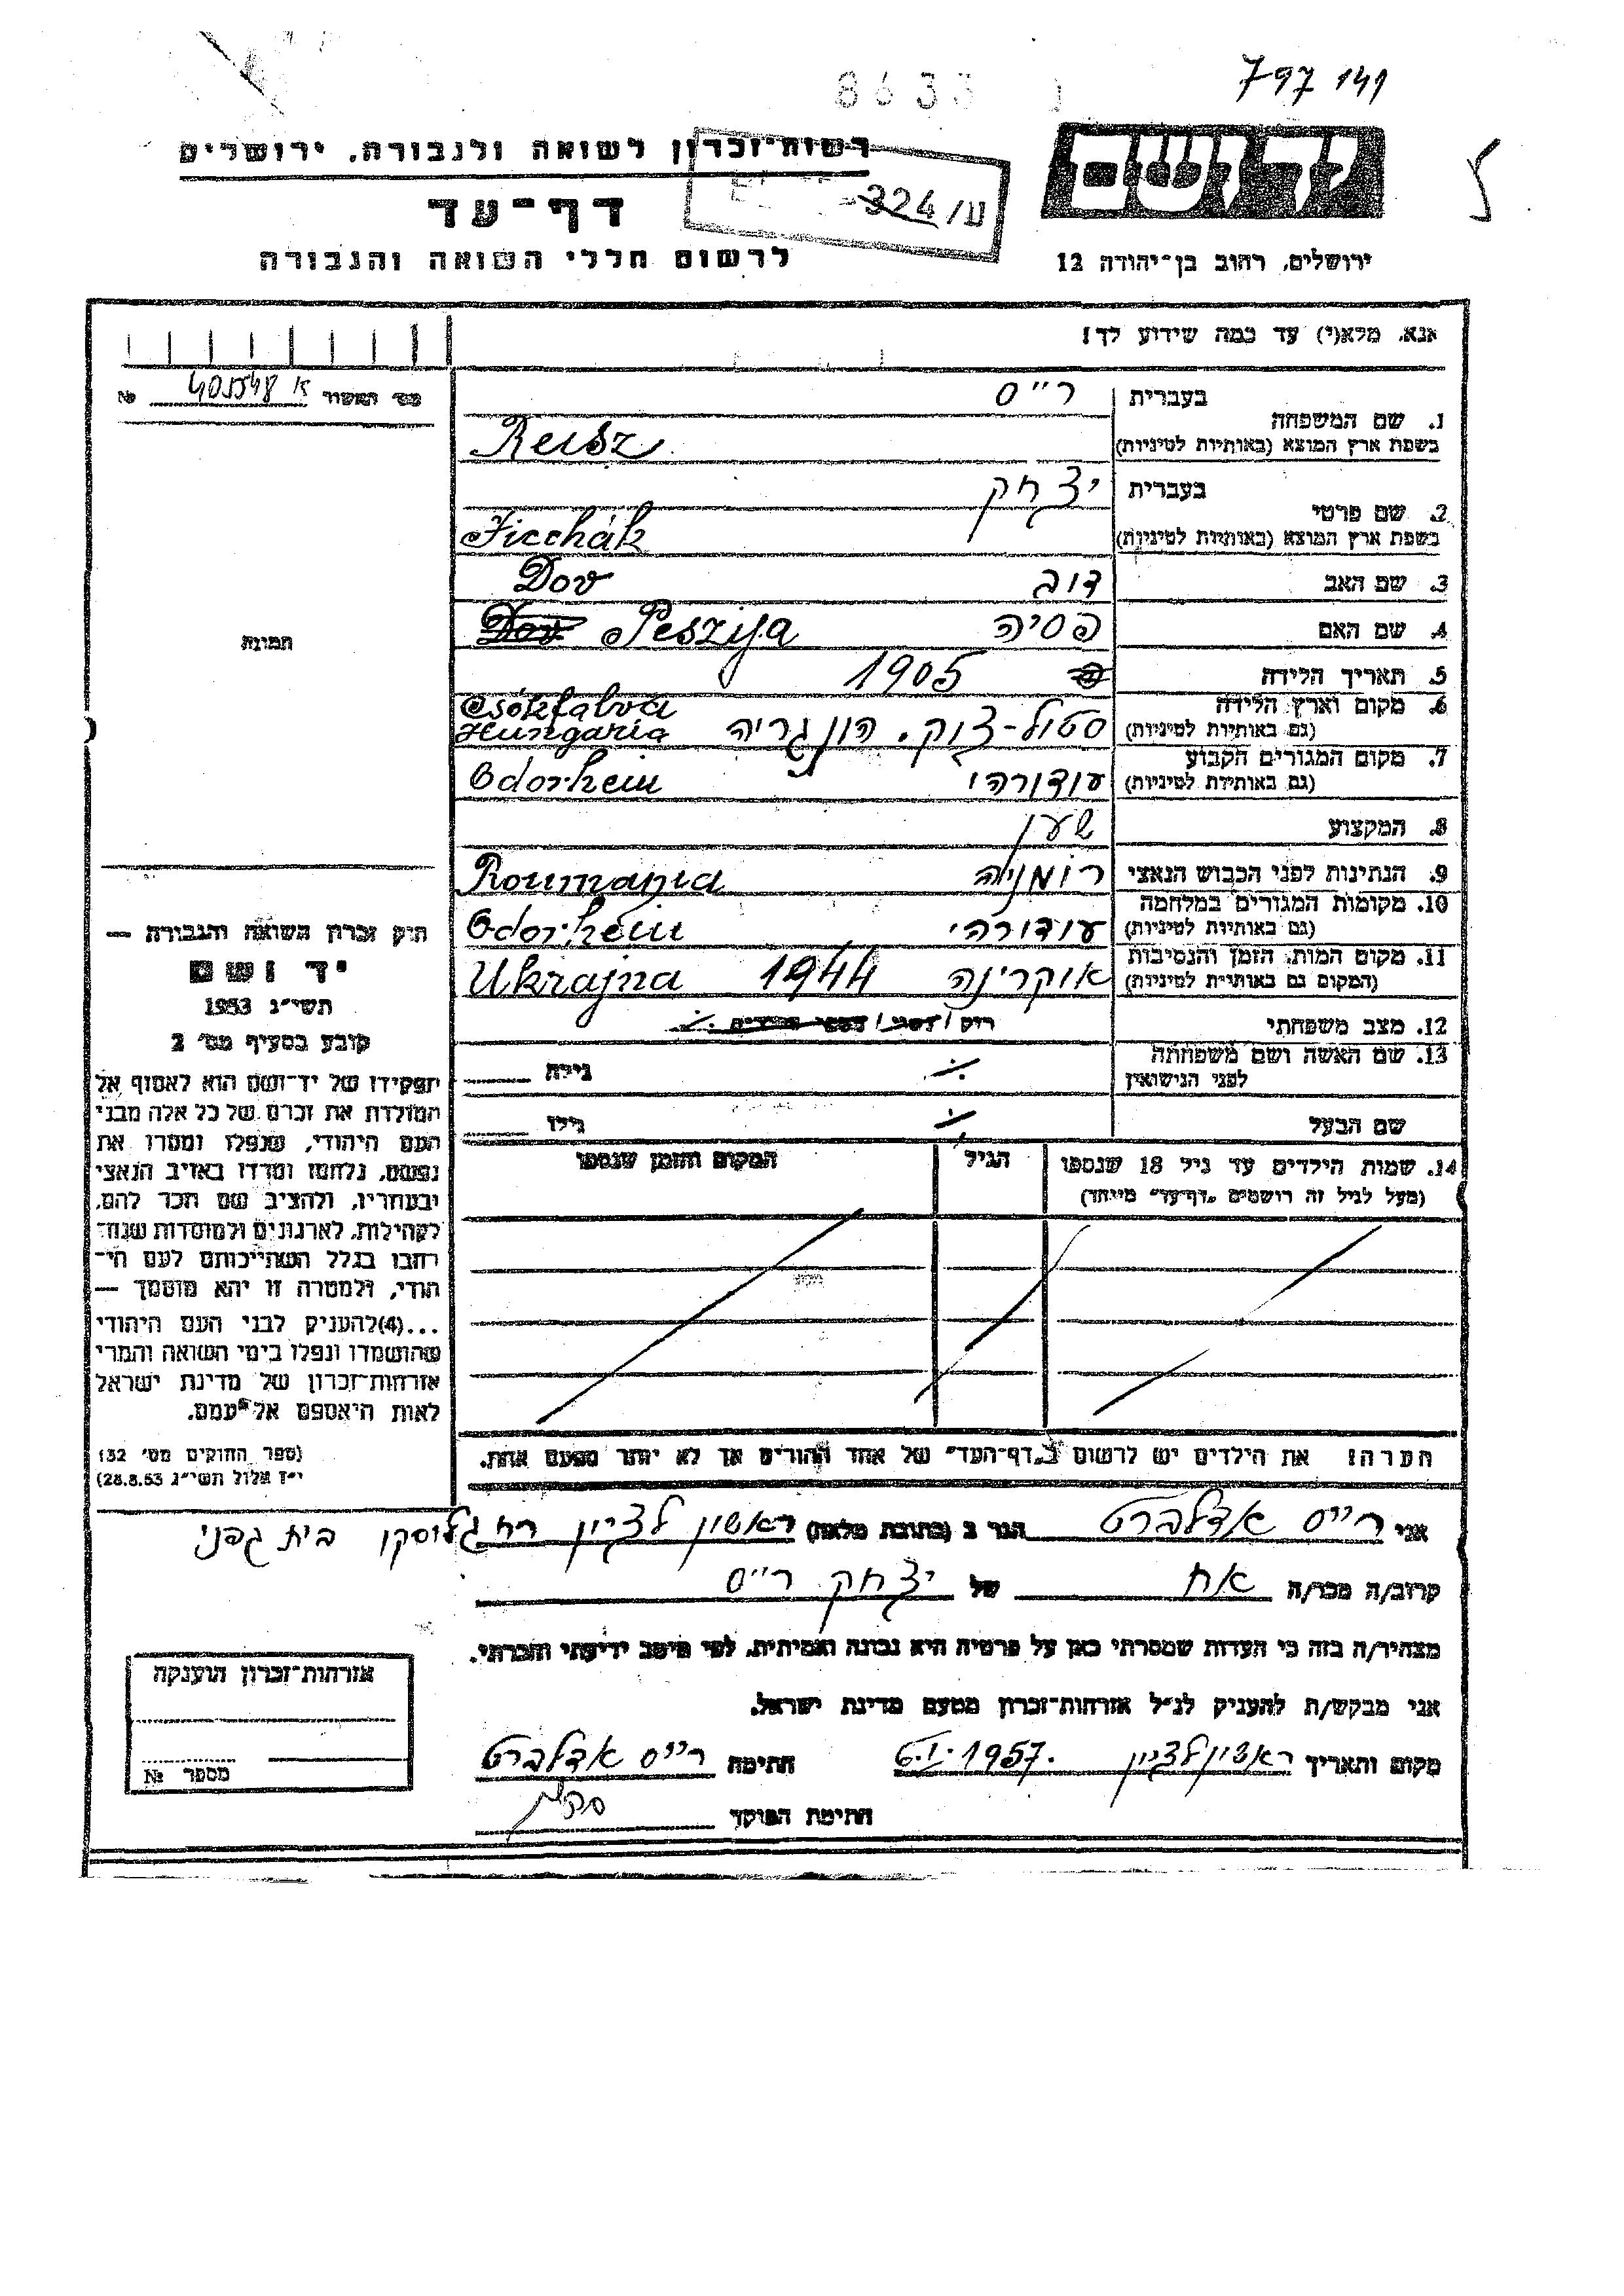 797 141
8633
רשות־זכרון לשואה ולגבורה, ירושלים
יד ושם
ע/324-
דף־עד
לרשום חללי השואה והגבורה
ירושלים, רחוב בן־יהודה 12
אנא, מלא(י) עד כמה שידוע לך!
מס׳ האשור 405548 №
1. שם המשפחה
בעברית ר״ס
בשפת ארץ המוצא (באותיות לטיניות) Reisz
2. שם פרטי
בעברית יצחק
בשפת ארץ המוצא (באותיות לטיניות) Jicchák
3. שם האב דוב Dov
4. שם האם פסיה Dov Peszija
5. תאריך הלידה 1905
6. מקום וארץ הלידה Csókfalva
(גם באותיות לטיניות) סטול-צוק. הונגריה Hungaria
7. מקום המגורים הקבוע
(גם באותיות לטיניות) עודורהי Odorheiu
8. המקצוע שען
9. הנתינות לפני הכבוש הנאצי רומניה Roumania
10. מקומות המגורים במלחמה
(גם באותיות לטיניות) עודורהי Odorheiu
11. מקום המות, הזמן והנסיבות
(המקום גם באותיות לטיניות) אוקרינה 1944 Ukrajna
12. מצב משפחתי רוק/נשוי/מספר הילדים ./.
13. שם האשה ושם משפחתה
לפני הנישואין ./. גילה
שם הבעל ./. גילו
14. שמות הילדים עד גיל 18 שנספו
(מעל לגיל זה רושמים „דף־עד” מיוחד)
הגיל
המקום והזמן שנספו
הערה! את הילדים יש לרשום ב„דף־העד” של אחד ההורים אך לא יותר מפעם אחת.
תמונה
חוק זכרון השואה והגבורה —
יד ושם
תשי״ג 1953
קובע בסעיף מס׳ 2
תפקידו של יד־ושם הוא לאסוף אל
המולדת את זכרם של כל אלה מבני
העם היהודי, שנפלו ומסרו את
נפשם, נלחמו ומרדו באויב הנאצי
ובעוזריו, ולהציב שם וזכר להם,
לקהילות, לארגונים ולמוסדות שנח־
רבו בגלל השתייכותם לעם הי־
הודי, ולמטרה זו יהא מוסמך —
...(4)להעניק לבני העם היהודי
שהושמדו ונפלו בימי השואה והמרי
אזרחות־זכרון של מדינת ישראל
לאות היאספם אל עמם.
(ספר החוקים מס׳ 132
י״ז אלול תשי״ג 28.8.53)
אני רייס אדלברט הגר ב (כתובת מלאה) ראשון לציון רח גלוסקין בית גפני
קרוב/ה מכר/ה אח של יצחק ר״ס
מצהיר/ה בזה כי העדות שמסרתי כאן על פרטיה היא נכונה ואמיתית, לפי מיטב ידיעתי והכרתי.
אני מבקש/ת להעניק לנ״ל אזרחות־זכרון מטעם מדינת ישראל.
מקום ותאריך ראשון לציון 6.I.1957. חתימה רייס אדלברט
חתימת הפוקד
אזרחות־זכרון הוענקה
מספר №